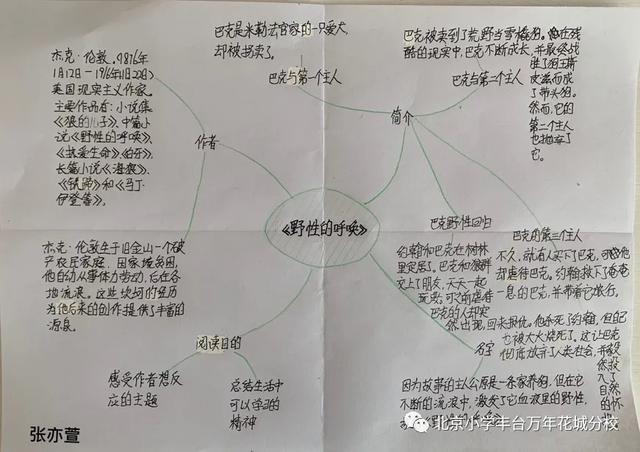 《野性的呼唤》
作者
杰克·伦敦。(1876年
1月12日-1916年11月22日)
美国现实主义作家。
主要作品有:小说集
《狼的儿子》、中篇小
说《野性的呼唤》
《热爱生命》《白牙》、
长篇小说《海狼》、
《铁蹄》和《马丁·
伊登等》。
杰克·伦敦生于旧金山一个破
产农民家庭,因家境贫困,
他自幼从事体力劳动,后在各
地流浪。这些坎坷的经历
为他后来的创作提供了丰富的
源泉。
阅读目的
感受作者想反
应的主题
总结生活中
可以学习的
精神
简介
巴克与第一个主人
巴克是米勒法官家的一只爱犬,
却被拐卖了。
巴克与第二个主人
巴克被卖到了荒野当雪橇狗。他在残
酷的现实中,巴克不断成长,并最终战
胜了狗王斯
皮兹而成
了带头狗。
然而,它的
第二个主人
也抛弃了
它。
巴克的第三个主人
不久,就有人买下了巴克,可他
却虐待巴克。约翰救下了奄奄
一息的巴克,并带着它旅行。
巴克野性回归
约翰和巴克在树林
里定居了。巴克和狼群
交上了朋友,天天一起
玩耍;可之前虐待
巴克的人却突
然出现,回来报仇。他杀死了约翰,但自己
也被大火烧死了。这让巴克
彻底放弃了人类社会,并毅
然投
入了
自然
的怀
名字
因为故事的主人公原是一条家养狗,但在它
不断的流浪中,激发了它血液里的野性,
北京小学丰台万年花城分校
张亦萱